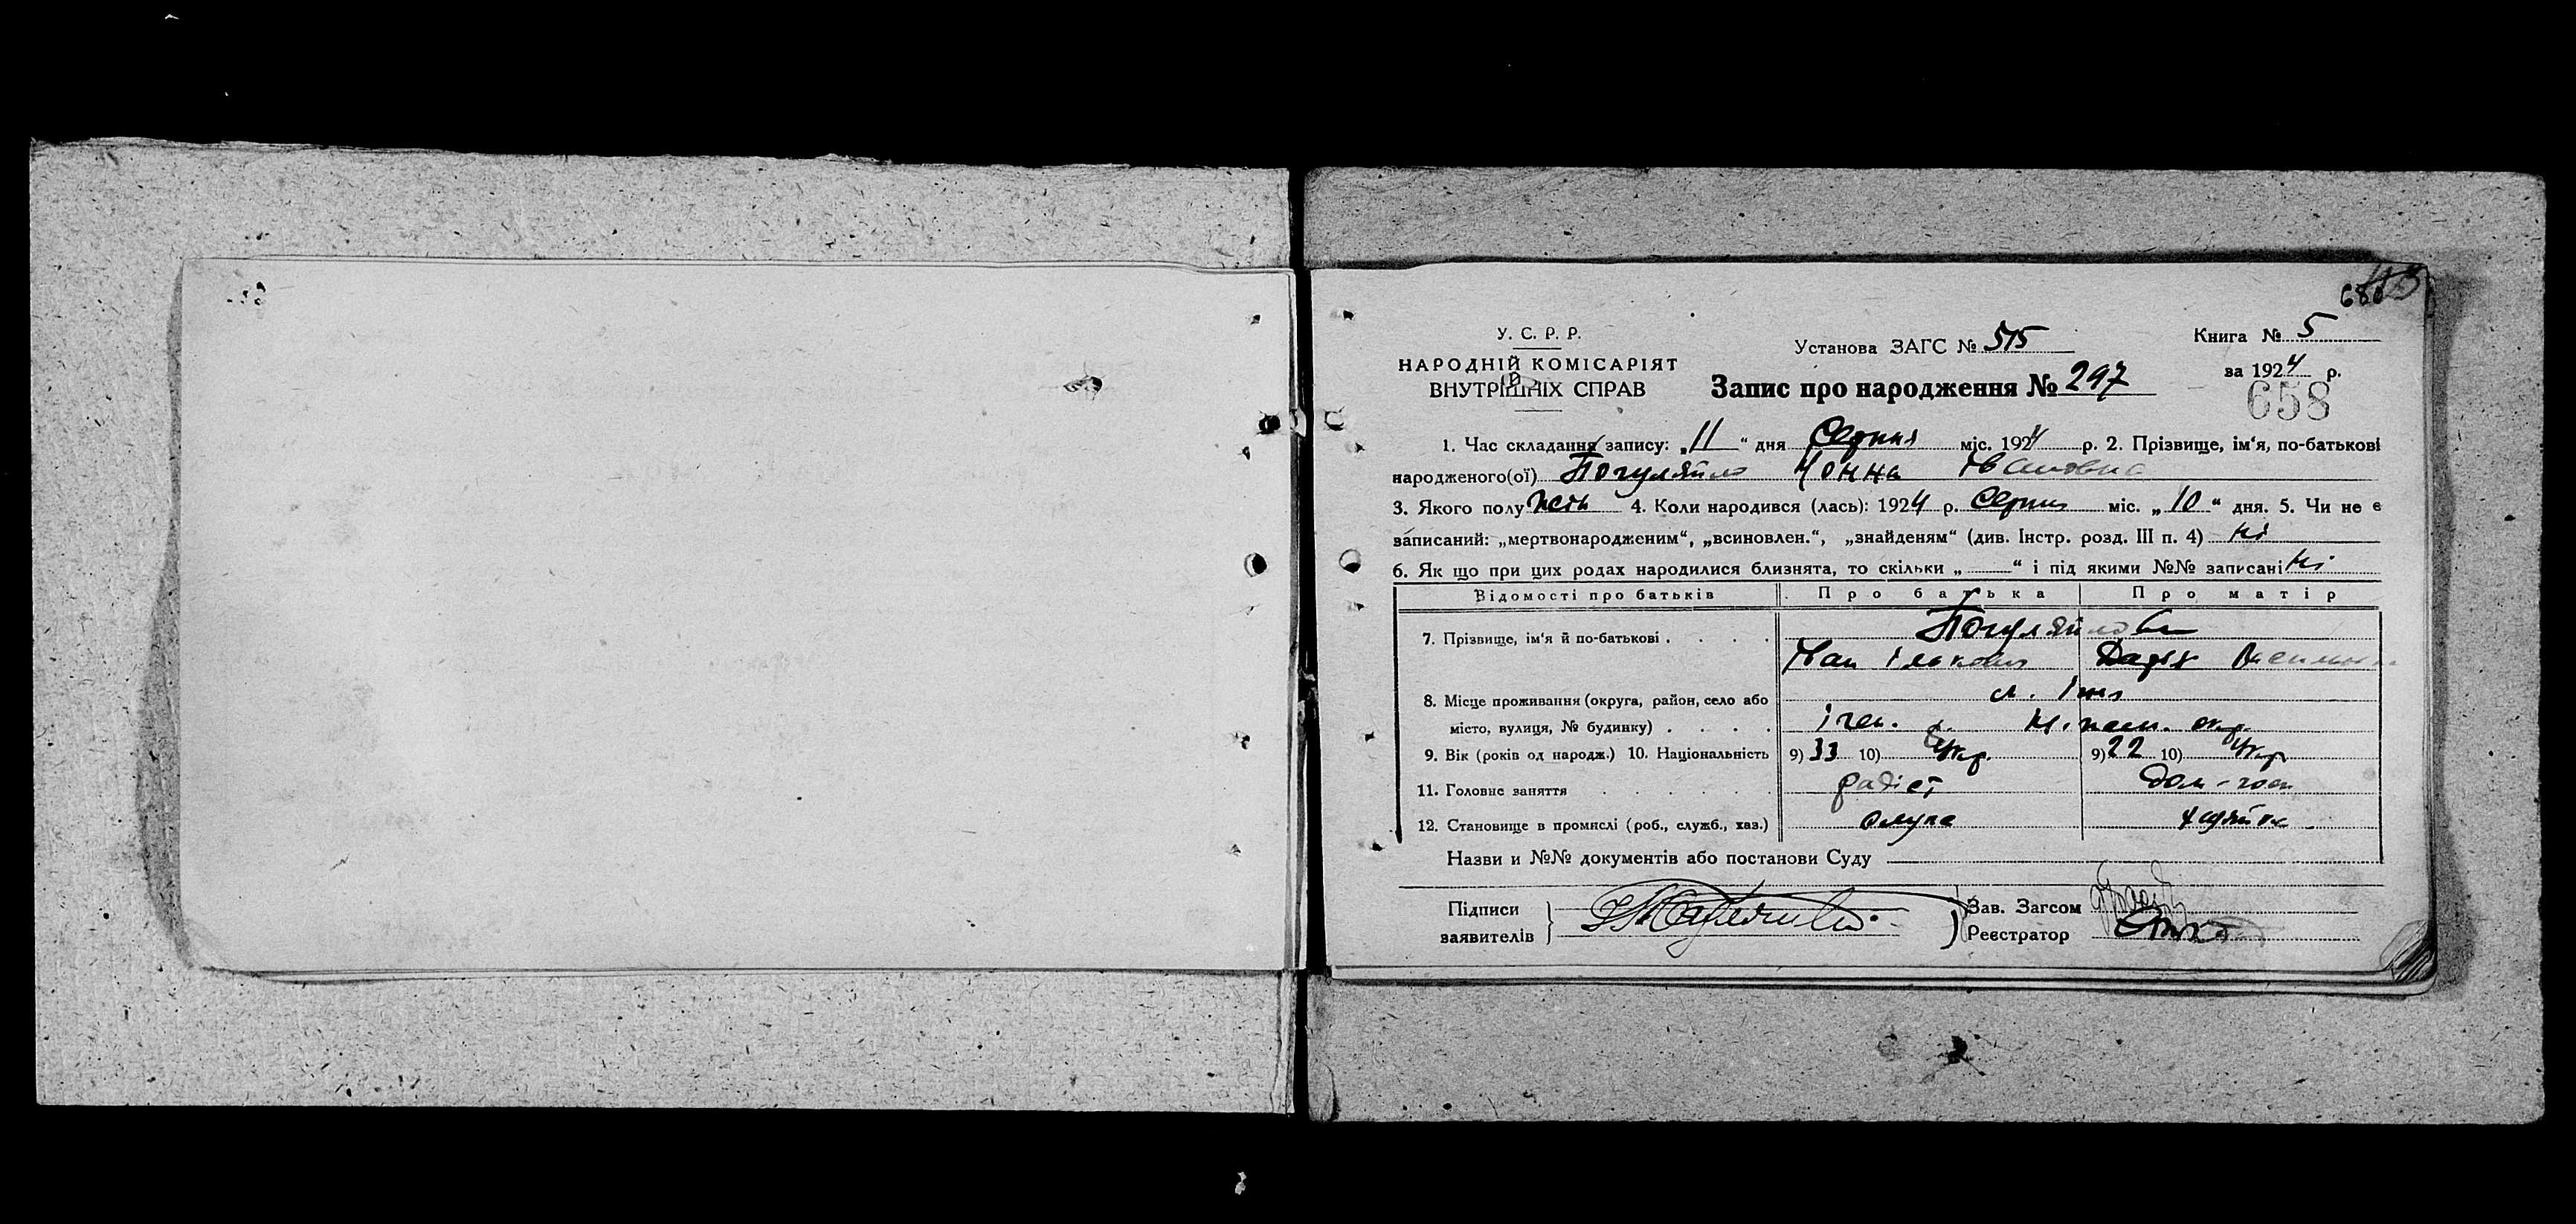 У. С. Р. Р.
НАРОДНІЙ КОМІСАРІЯТ
ВНУТРІШНІХ СПРАВ
Установа ЗАГС № 515
Книга № 5
за 1924 р.
658
Запис про народження № 297
1. Час складання запису: „11“ дня Серпня міс. 1924 р. 2. Прізвище, ім‘я, по-батькові
народженого(ої) Погуляйло Нонна Ивановна
3. Якого полу жін 4. Коли народився (лась): 1924 р. Серпня міс. „10“ дня. 5. Чи не є
записаний: „мертвонародженим“, „всиновлен.“, „знайденям“ (див. Інстр. розд. III п. 4) Ні
6. Як що при цих родах народилися близнята, то скільки „ “ і під якими №№ записані Ні
Відомості про батьків Про батька Про матір
7. Прізвище, ім‘я й по-батькові . . . . Погуляйло
Іван Дарія
8. Місце проживання (округа, район, село або м.
місто, вулиця, № будинку) . . . . Ічен. р. окр.
9. Вік (років од народж.) 10. Національність 9) 33 10) Укр. 9) 22 10) Укр
11. Головне заняття . . . . . Дом-
12. Становище в промислі (роб., служб., хаз.)
Назви и №№ документів або постанови Суду
Підписи
заявителів
Зав. Загсом
Реєстратор